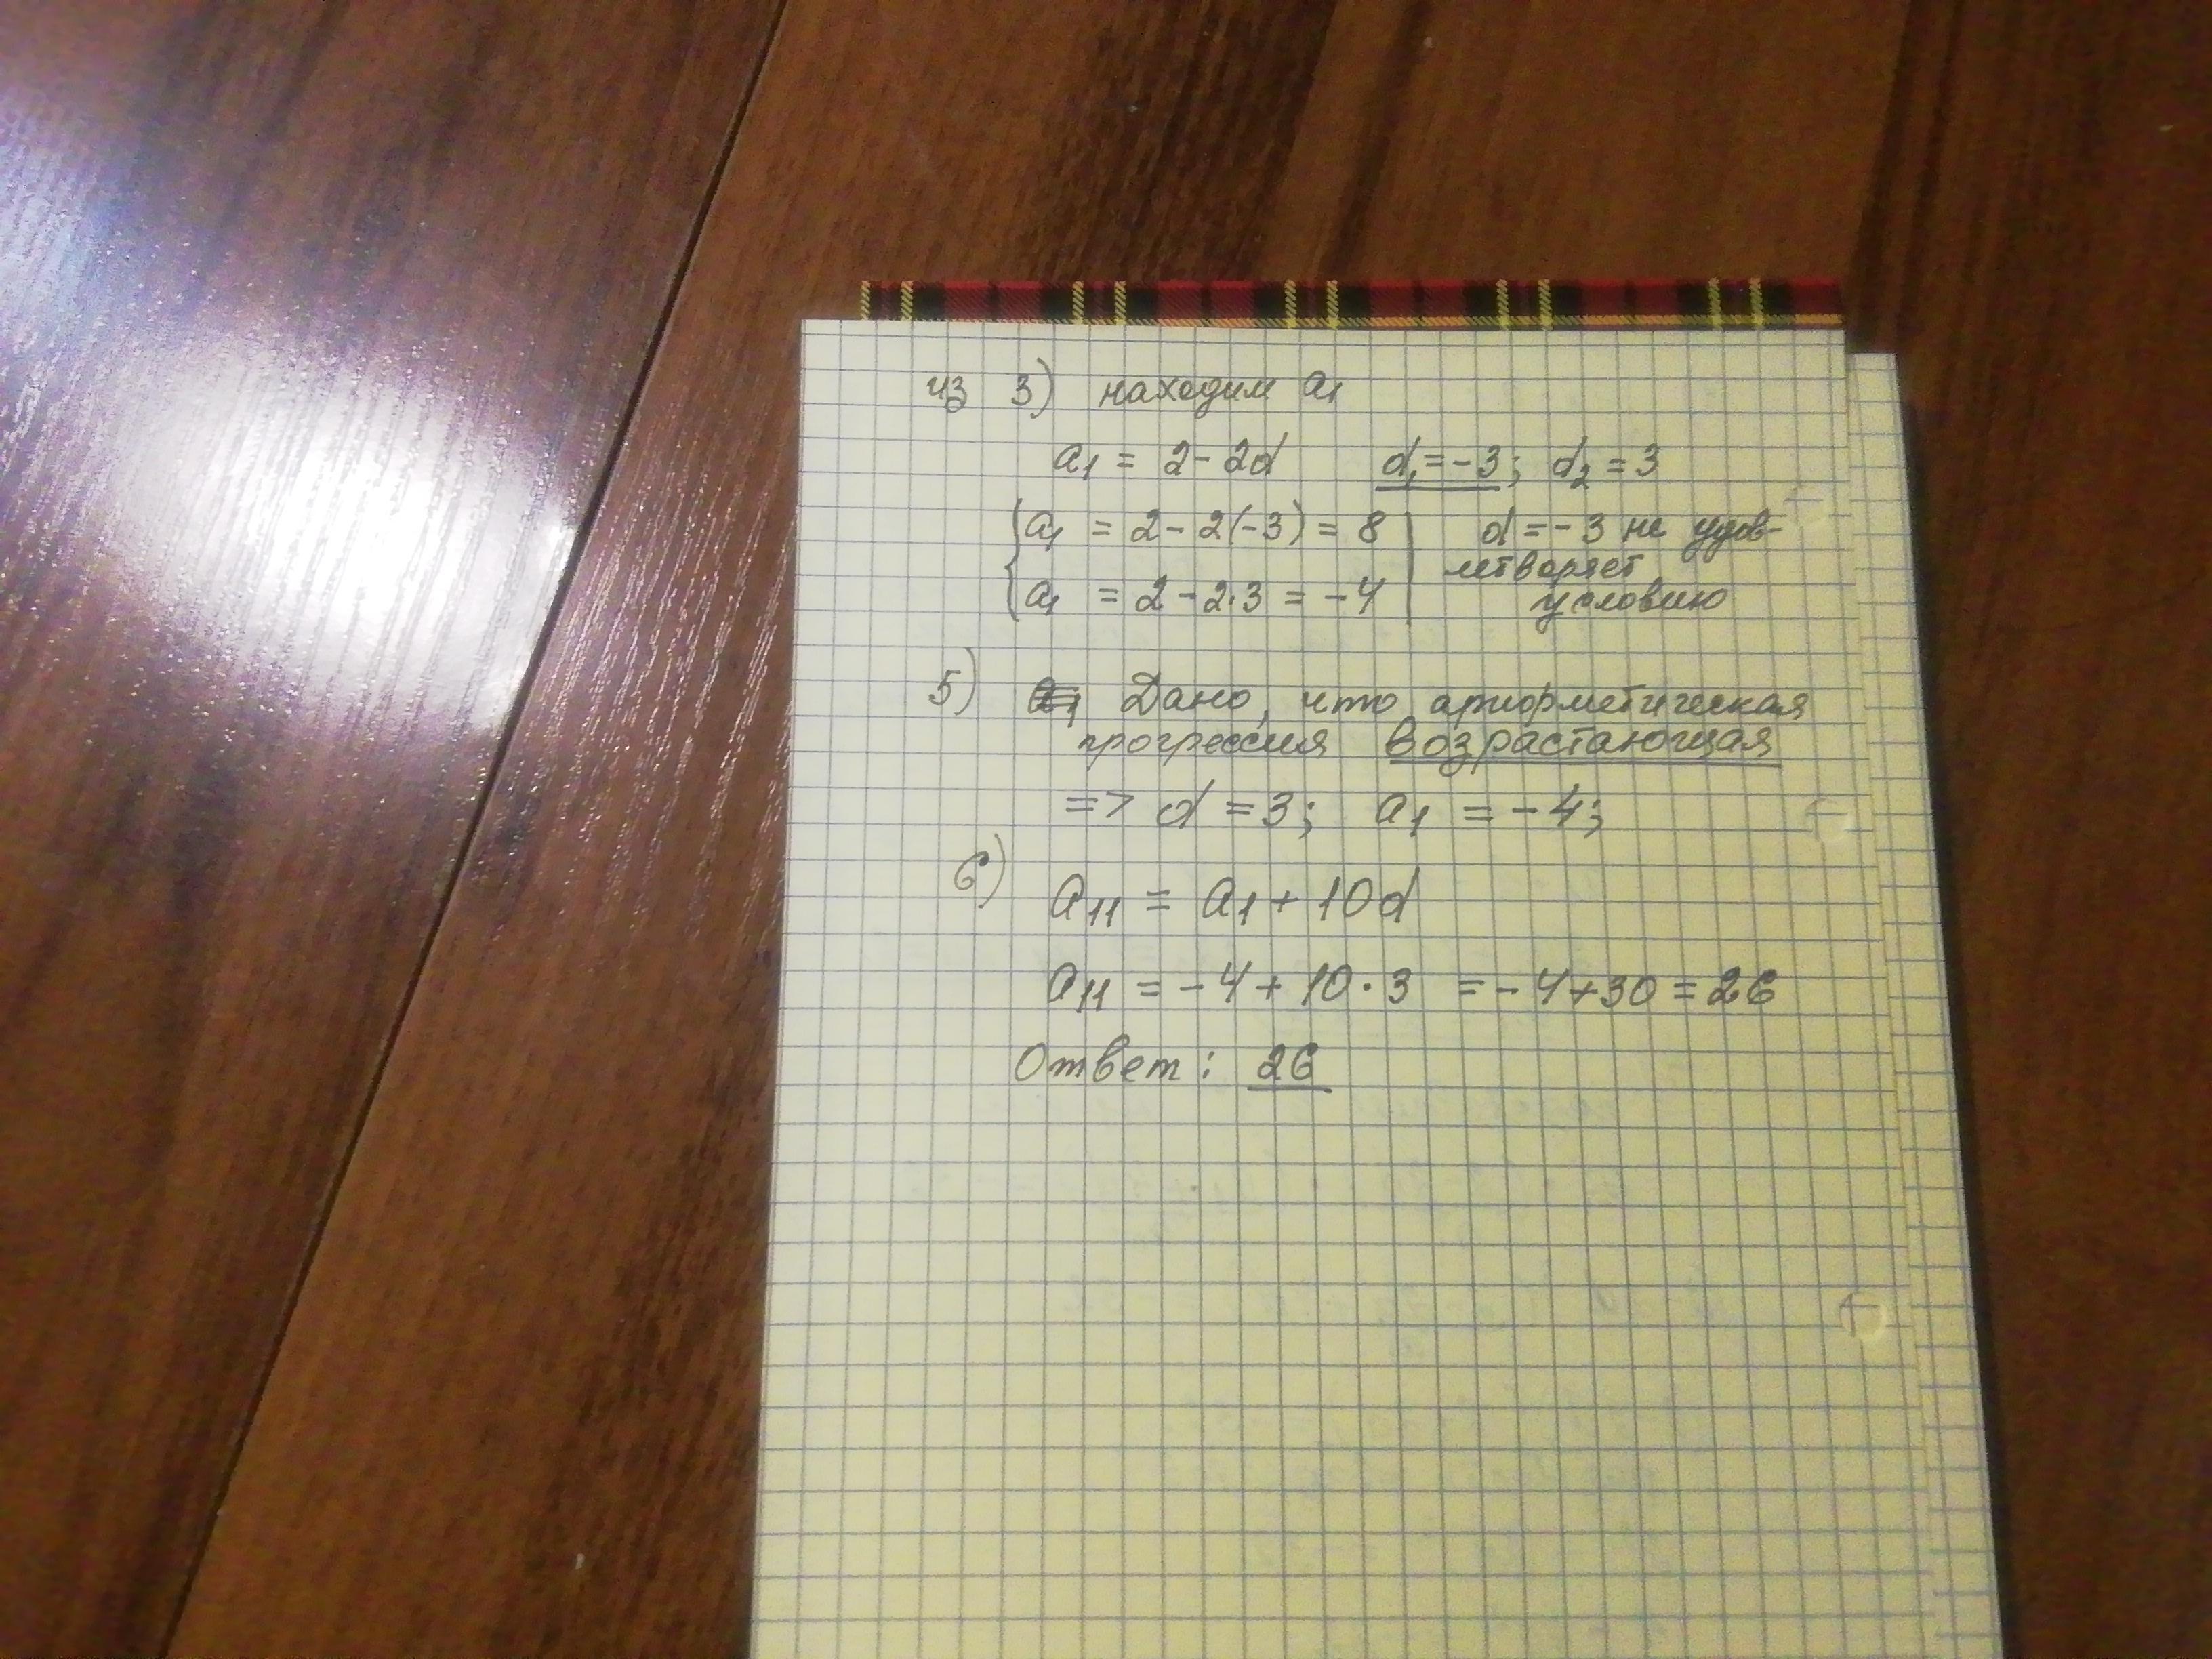 из 3) находим a₁
a₁ = 2 - 2d d₁ = -3; d₂ = 3
a₁ = 2 - 2(-3) = 8 d = -3 не удов-
летворяет
a₁ = 2 - 2·3 = -4 условию
5) Дано, что арифметическая
прогрессия возрастающая
=> d = 3; a₁ = -4;
6) a₁₁ = a₁ + 10d
a₁₁ = -4 + 10·3 = -4+30 = 26
Ответ: 26